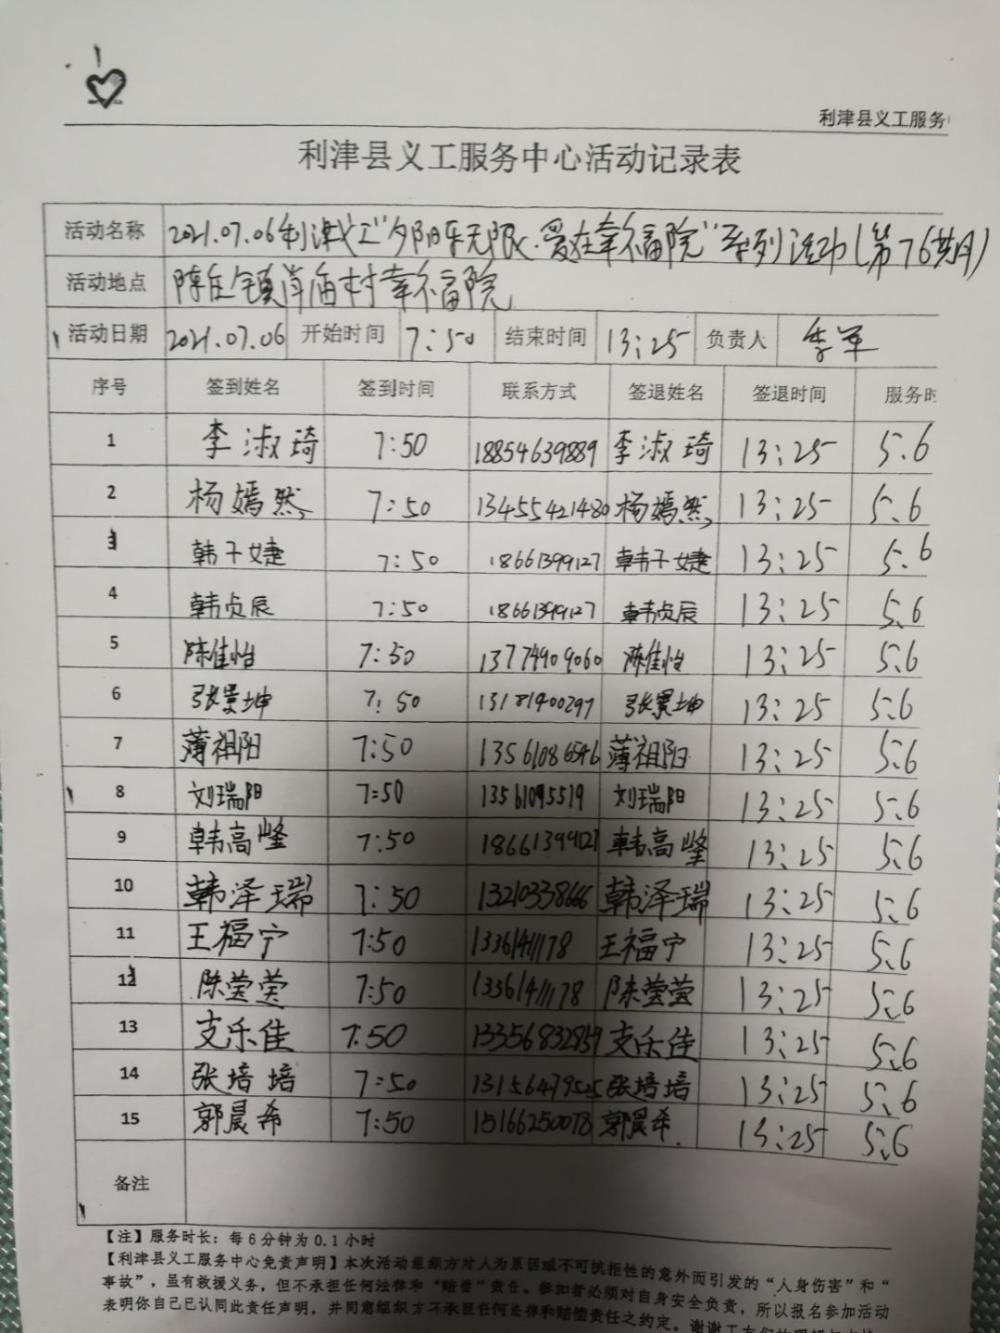 利津县义工服务
利津县义工服务中心活动记录表
活动名称 2021.07.06利津义工"夕阳乐无限.爱在幸福院"系列活动(第76期)
活动地点 陈庄镇肖庙村幸福院
活动日期 2021.07.06 开始时间 7:50 结束时间 13:25 负责人 李军
序号 签到姓名 签到时间 联系方式 签退姓名 签退时间 服务时
1 李淑琦 7:50 18854639889 李淑琦 13:25 5.6
2 杨嫣然 7:50 13455421480 杨嫣然 13:25 5.6
3 韩子婕 7:50 18661399127 韩子婕 13:25 5.6
4 韩贞辰 7:50 18661399127 韩贞辰 13:25 5.6
5 陈佳怡 7:50 13774909060 陈佳怡 13:25 5.6
6 张景坤 7:50 13181400297 张景坤 13:25 5.6
7 薄祖阳 7:50 13561086546 薄祖阳 13:25 5.6
8 刘瑞阳 7:50 13561095519 刘瑞阳 13:25 5.6
9 韩高峰 7:50 18661399127 韩高峰 13:25 5.6
10 韩泽瑞 7:50 13210338666 韩泽瑞 13:25 5.6
11 王福宁 7:50 13361411178 王福宁 13:25 5.6
12 陈莹莹 7:50 13361411178 陈莹莹 13:25 5.6
13 支乐佳 7:50 13356832859 支乐佳 13:25 5.6
14 张培培 7:50 13156479525 张培培 13:25 5.6
15 郭晨希 7:50 15166250078 郭晨希 13:25 5.6
备注
【注】服务时长：每6分钟为0.1小时
【利津县义工服务中心免责声明】本次活动组织方对人为原因或不可抗拒性的意外而引发的"人身伤害"和"
事故"，虽有救援义务，但不承担任何法律和"赔偿"责任。参加者必须对自身安全负责，所以报名参加活动
表明你自己已认同此责任声明，并同意组织方不承担任何法律和赔偿责任之约定。谢谢